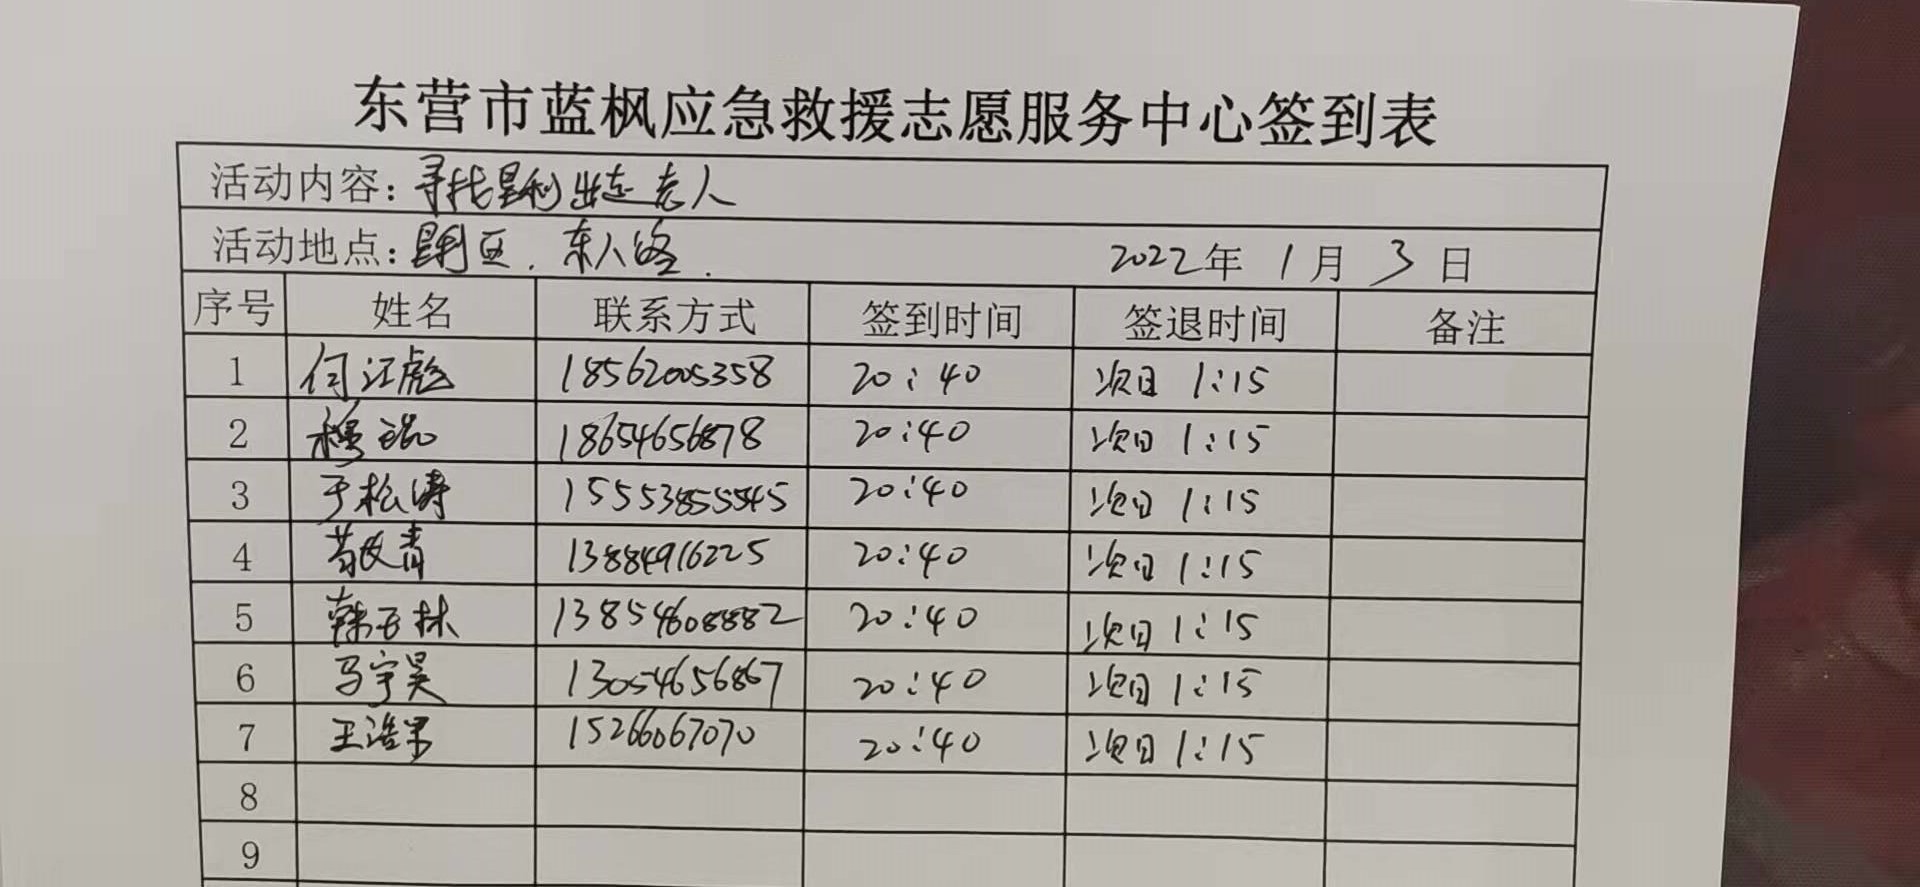 东营市蓝枫应急救援志愿服务中心签到表
活动内容：寻找垦利走老人
活动地点：垦利区．东八路． 2022年 1月 3日
序号 姓名 联系方式 签到时间 签退时间 备注
1 何江彪 18562005358 20:40 次日 1:15
2 穆琨 18654656878 20:40 次日 1:15
3 于松涛 15553855545 20:40 次日 1:15
4 青 13884916225 20:40 次日 1:15
5 韩玉林 13854608882 20:40 次日 1:15
6 马宇昊 13054656867 20:40 次日 1:15
7 王浩男 15266067070 20:40 次日 1:15
8
9